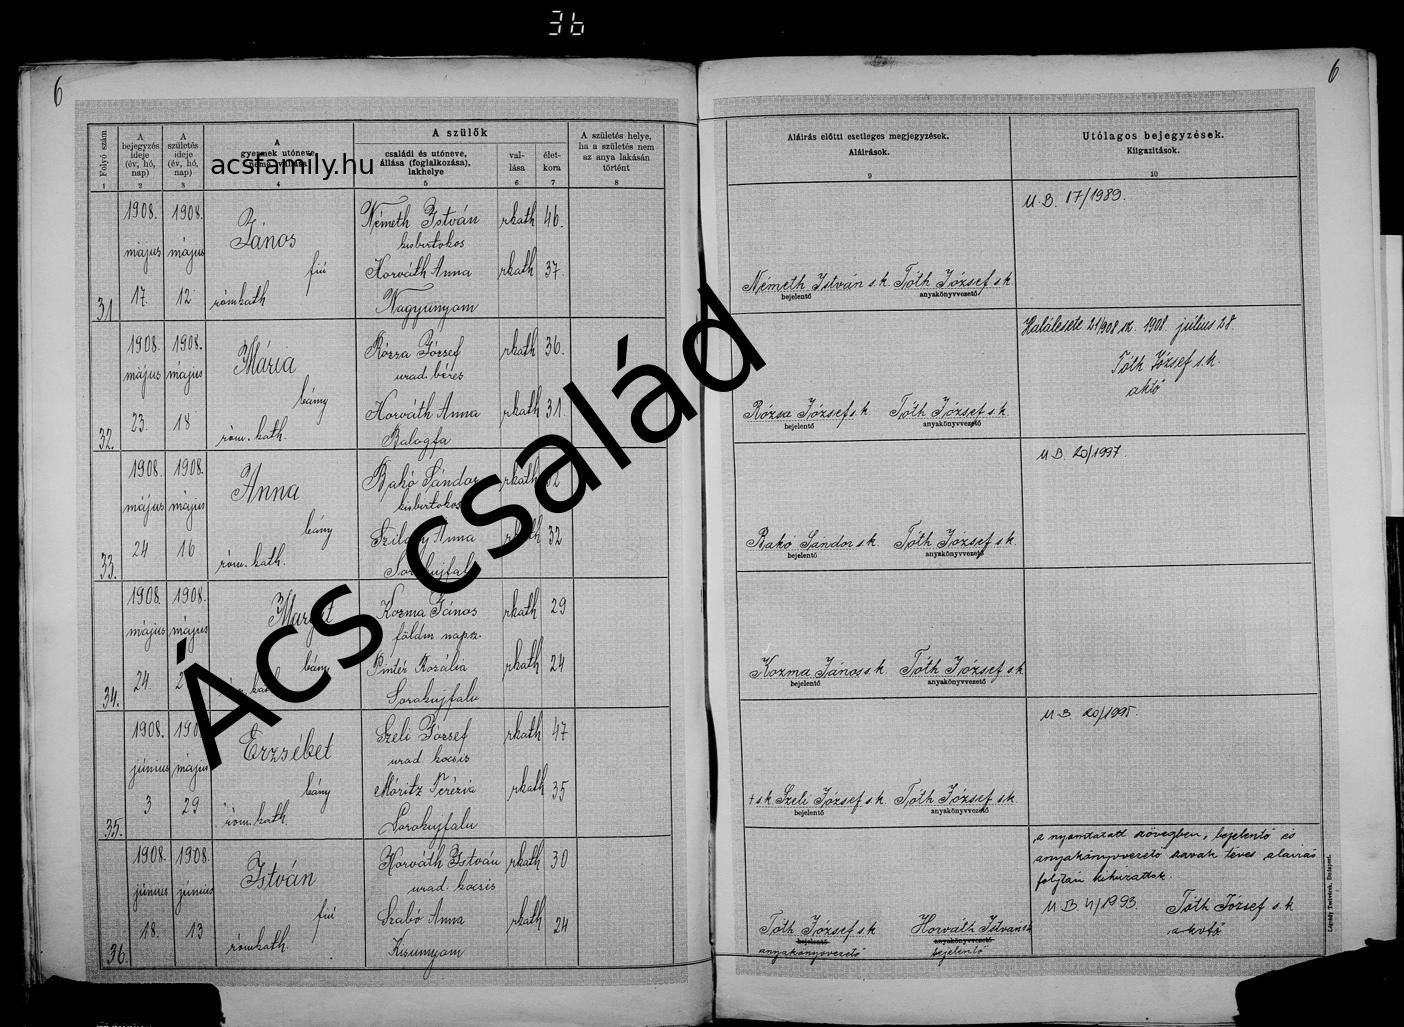 36
6
6
Folyó szám
A bejegyzés ideje (év, hó, nap)
A születés ideje (év, hó, nap)
A gyermek utóneve,
acsfamily.hu
A szülők
családi és utóneve, állása (foglalkozása), lakhelye
vallása
életkora
A születés helye, ha a születés nem az anya lakásán történt
Aláírás előtti esetleges megjegyzések.
Aláírások.
Utólagos bejegyzések.
Kiigazítások.
1 2 3 4 5 6 7 8 9 10
31
1908. május 17.
1908. május 12
János
fiú
róm kath
Németh István rkath 46.
kisbirtokos
Horváth Anna rkath 37.
Nagyunyom
Németh István s.k. Tóth József s.k.
bejelentő anyakönyvvezető
U.B. 17/1989.
32.
1908. május 23.
1908. május 18
Mária
leány
róm. kath.
Rózsa József rkath 36.
urad. béres
Horváth Anna rkath 31.
Balogfa
Rózsa József s.k. Tóth József s.k.
bejelentő anyakönyvvezető
Halálesete 21/908 sz. 1908. július 28.
Tóth József s.k.
33.
1908. május 24
1908. május 16
Anna
leány
róm. kath.
Bakó Sándor rkath
kisbirtokos
Szilágy Anna 32
Sorokujfalu
Bakó Sándor s.k. Tóth József s.k.
bejelentő anyakönyvvezető
U.B. 20/1997.
34.
1908. május 24.
1908. május
Margit
leány
Kozma János rkath 29
földm napsz.
Pintér Rozália rkath 24
Sorokujfalu
Kozma János s.k. Tóth József s.k.
bejelentő anyakönyvvezető
35.
1908. június 3
május 29
Erzsébet
leány
róm. kath.
Szeli József rkath 47
urad. kocsis
Móritz Terézia rkath 35
Sorokujfalu
+ s.k. Szeli József s.k. Tóth József s.k.
bejelentő anyakönyvvezető
U.B. 20/1995.
36.
1908. június 18.
1908. június 13
István
fiú
róm kath.
Horváth István rkath 30
urad. kocsis
Szabó Anna rkath 24
Kisunyom
Tóth József s.k. Horváth István s.k.
bejelentő anyakönyvvezető
anyakönyvvezető bejelentő
a nyomtatott szövegben, bejelentő és
anyakönyvvezető szavak téves aláírás
folytán kihúzattak.
U.B. 4/1993 Tóth József s.k.
Ács család